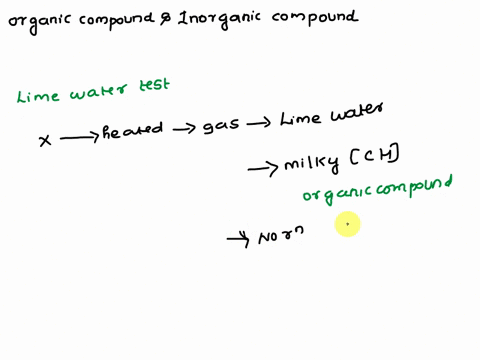 organic compound & Inorganic compound
Lime water test
X → heated → gas → Lime water
→ milky [CH]
organic compound
→ No rn